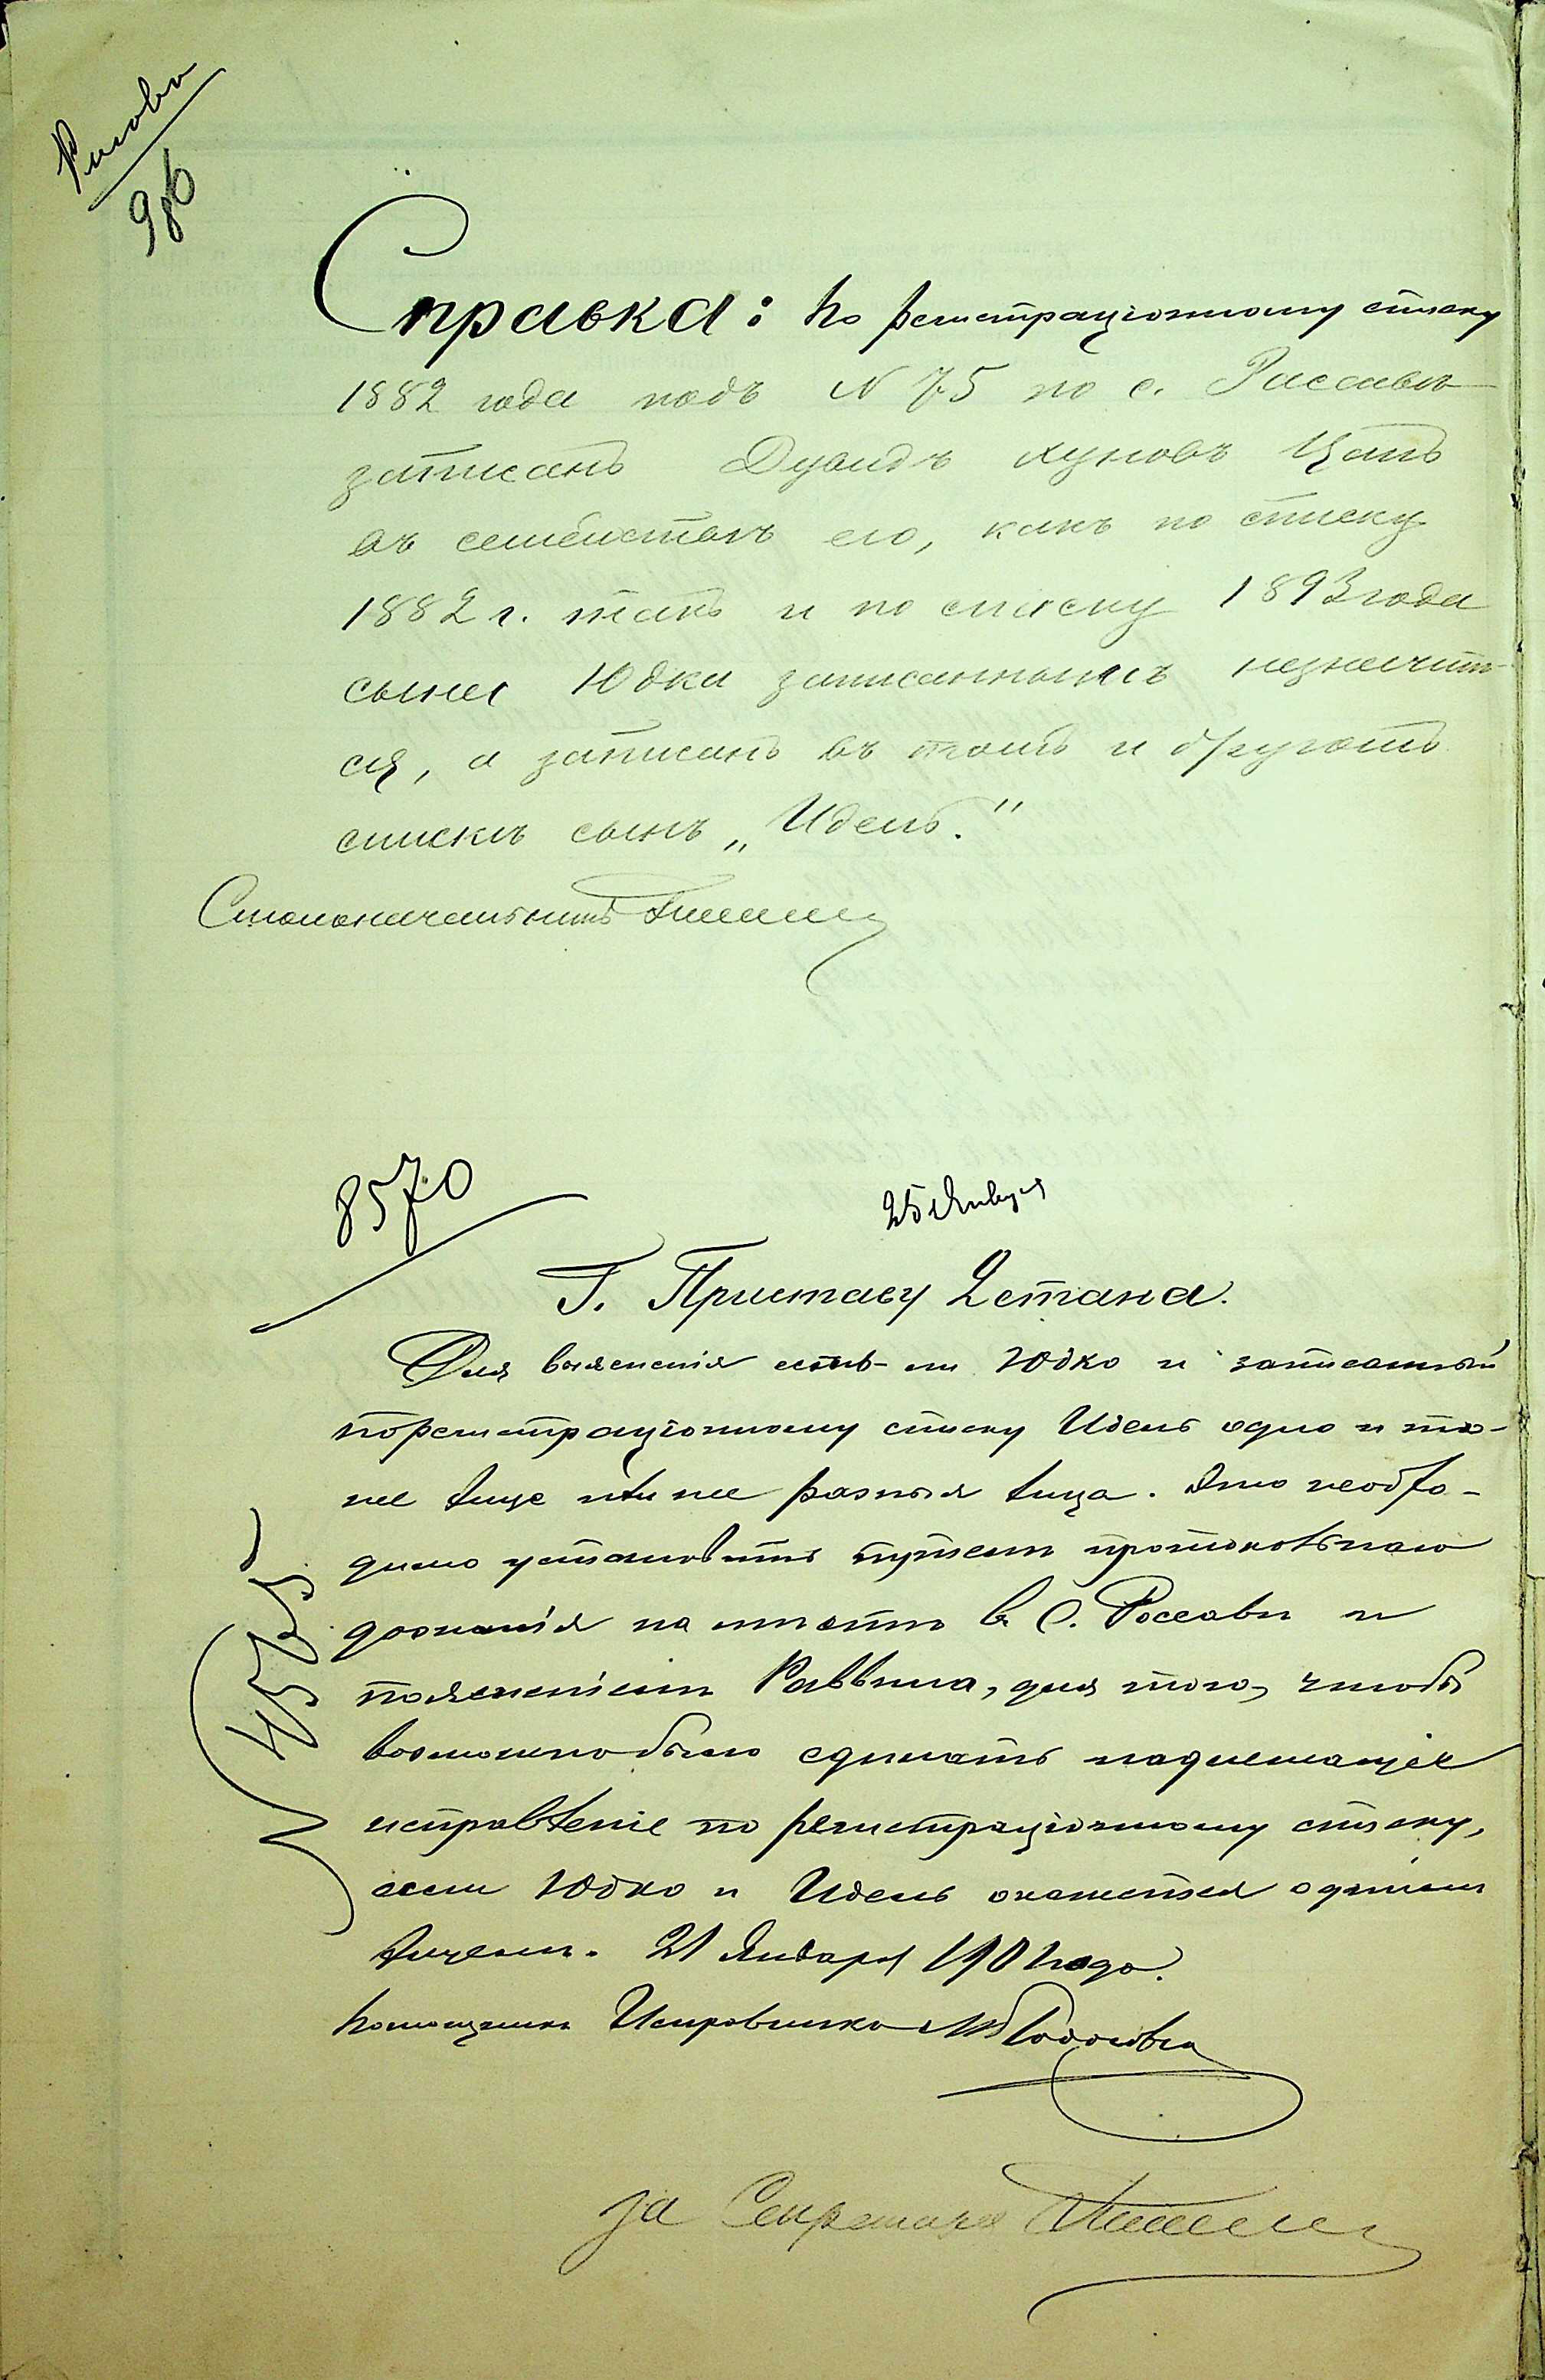 986
Справка: По регистраціонному списку
1882 года подъ N 75 по с. Рассавѣ
записанъ Дувидъ Хуновъ Цапъ
въ семействѣ его, какъ по списку
1882 г. такъ и по списку 1893 года
сына Юдка записаннымъ незначит-
ся, а записанъ въ томъ и другомъ
спискѣ сынъ „Идель."
Столоначальникъ
8570
25 Января
Г. Приставу 2 стана.
Для выясненія есть-ли Юдко и записанный
по регистраціонному списку Идель одно и то-
же лице или же разныя лица. Это необхо-
димо установить путемъ протокольнаго
дознанія на мѣстѣ в с. Россавѣ и
поясненіемъ Раввина, для того, чтобы
возможно было сдѣлать надлежащее
исправленіе по регистраціонному списку,
если Юдко и Идель окажется однимъ
лицемъ. 21 Января 1901 года.
Помощникъ Исправника
за Секретаря